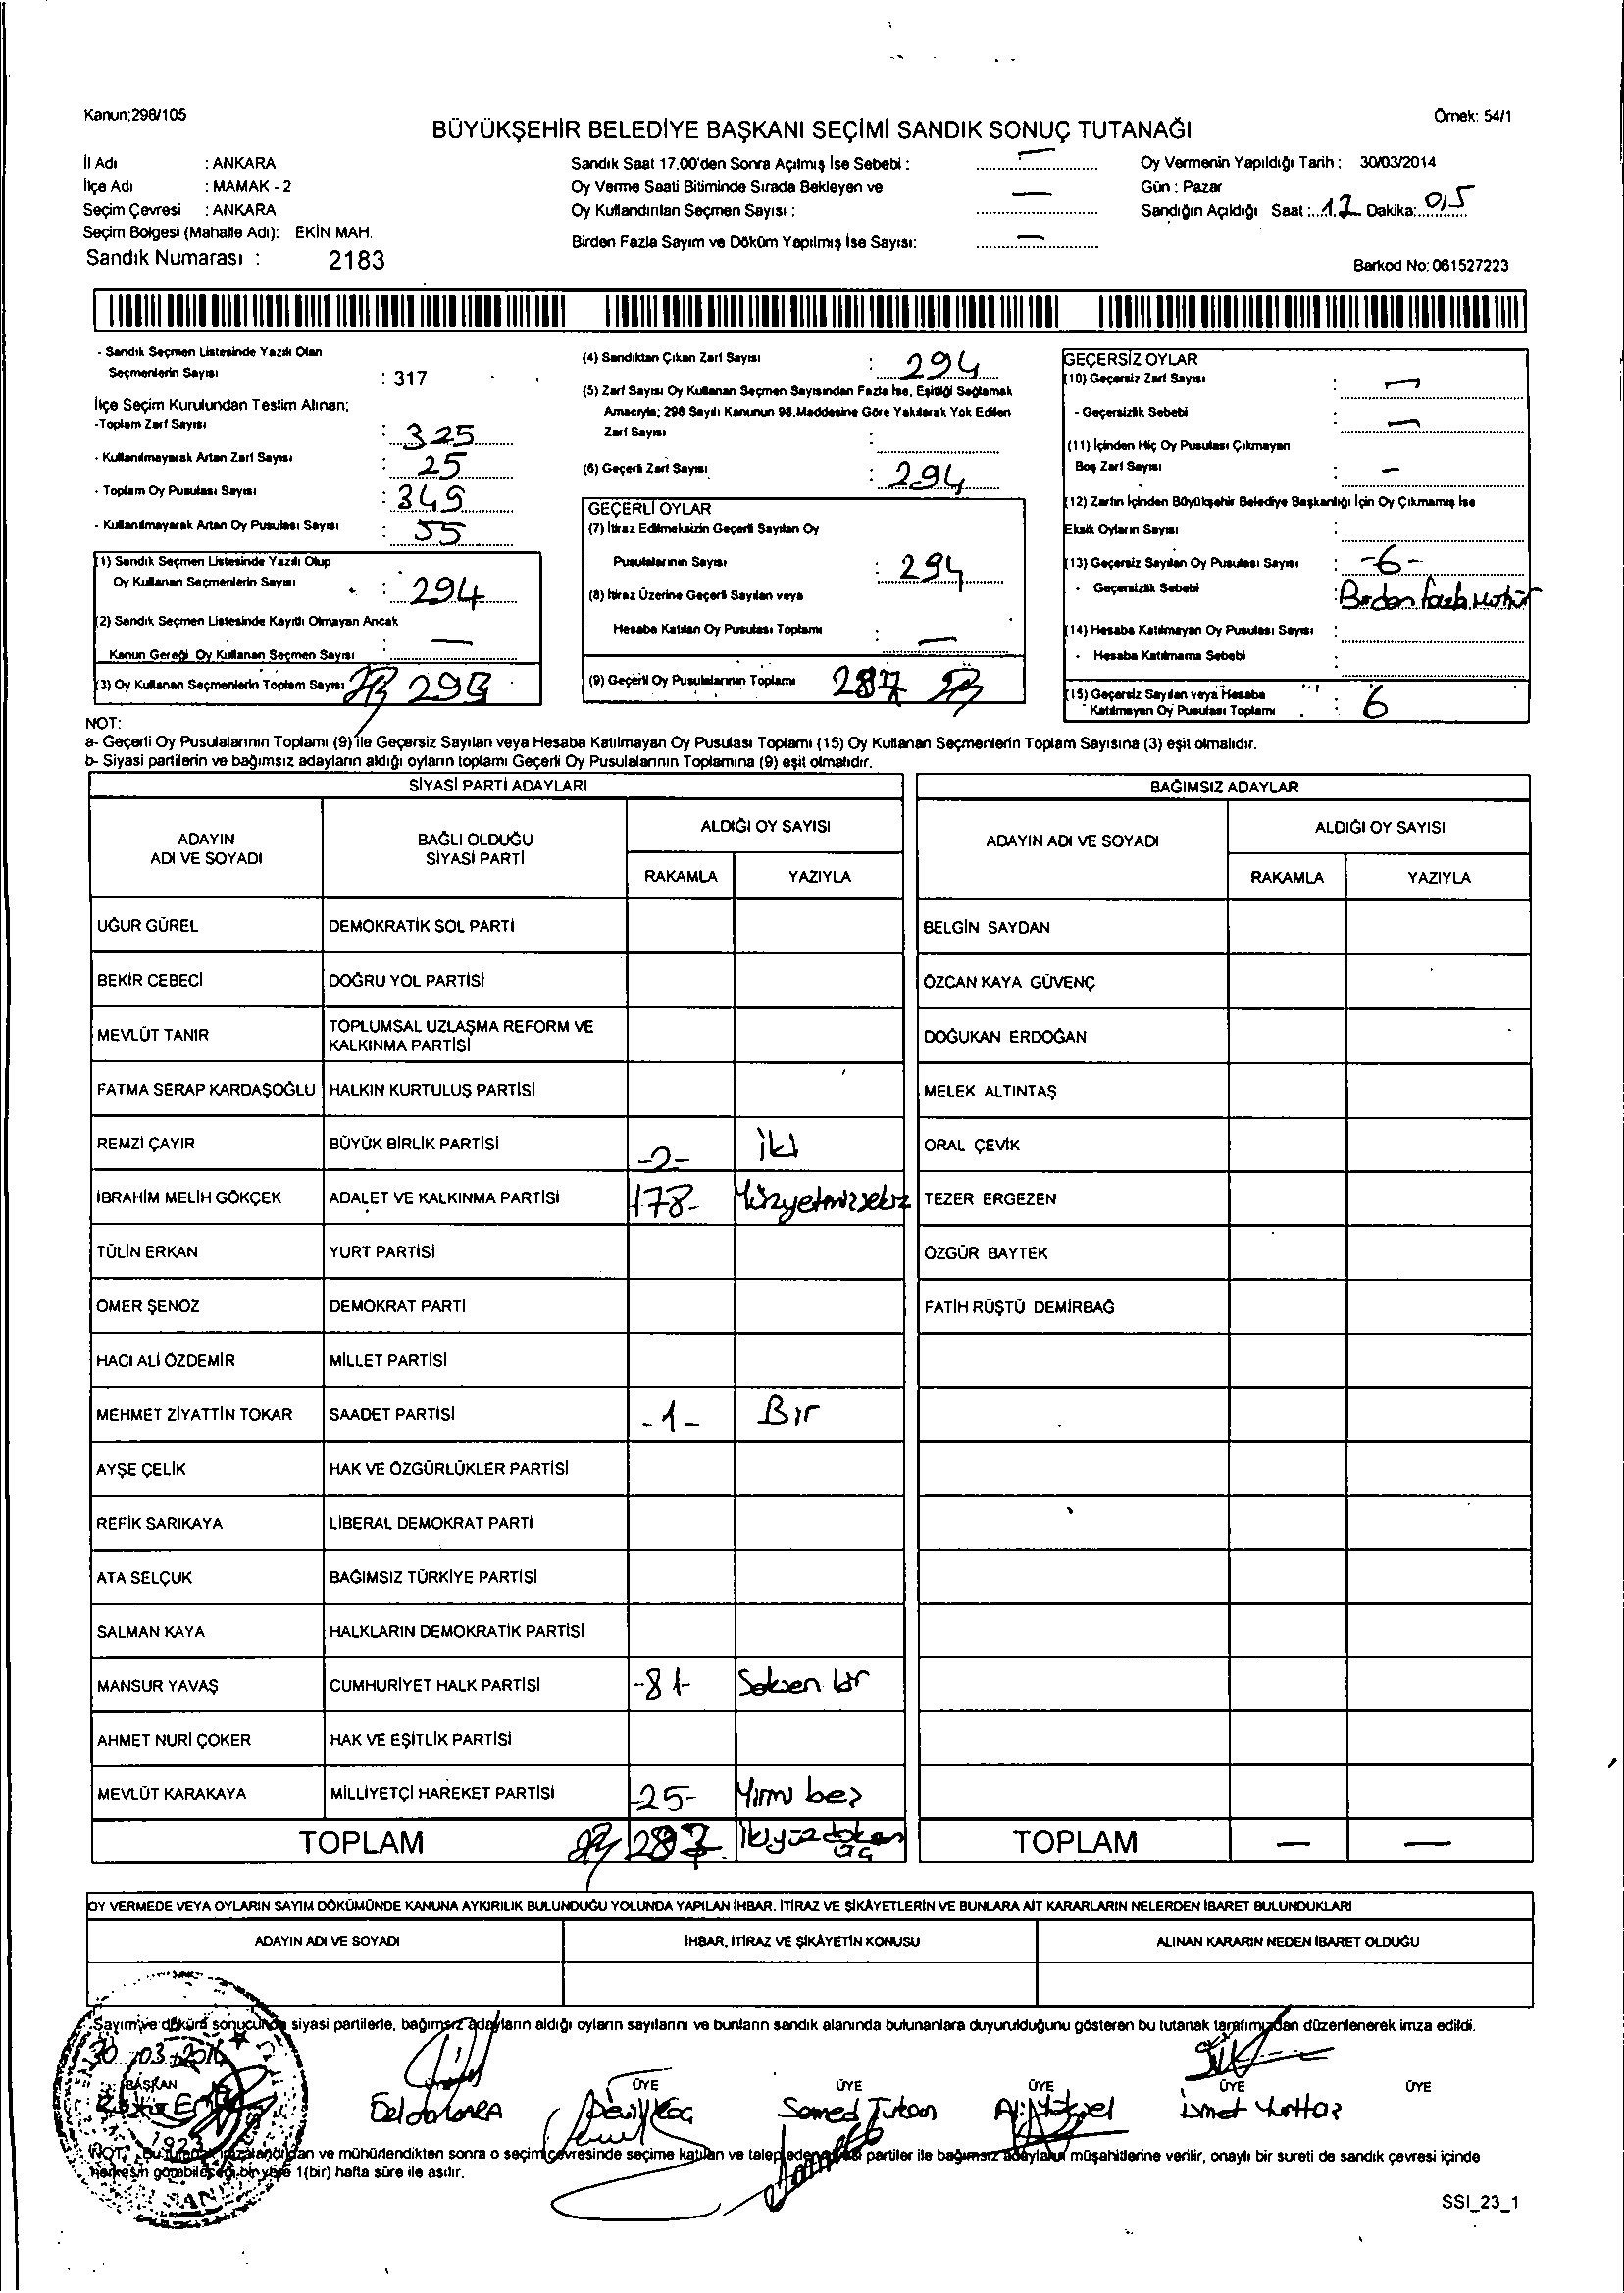 Kanun:298/105
Örnek: 54/1
BÜYÜKŞEHİR BELEDİYE BAŞKANI SEÇİMİ SANDIK SONUÇ TUTANAĞI
İl Adı : ANKARA
İlçe Adı : MAMAK - 2
Seçim Çevresi : ANKARA
Seçim Bölgesi (Mahalle Adı): EKİN MAH.
Sandık Numarası : 2183
Sandık Saat 17.00'den Sonra Açılmış İse Sebebi : —
Oy Verme Saati Bitiminde Sırada Bekleyen ve
Oy Kullandırılan Seçmen Sayısı : —
Birden Fazla Sayım ve Döküm Yapılmış İse Sayısı: —
Oy Vermenin Yapıldığı Tarih : 30/03/2014
Gün : Pazar
Sandığın Açıldığı Saat : Dakika:
Barkod No: 061527223
- Sandık Seçmen Listesinde Yazılı Olan
Seçmenlerin Sayısı : 317
İlçe Seçim Kurulundan Teslim Alınan;
-Toplam Zarf Sayısı : 325
- Kullanılmayarak Artan Zarf Sayısı : 25
- Toplam Oy Pusulası Sayısı : 349
- Kullanılmayarak Artan Oy Pusulası Sayısı : 55
(1) Sandık Seçmen Listesinde Yazılı Olup
Oy Kullanan Seçmenlerin Sayısı : 294
(2) Sandık Seçmen Listesinde Kayıtlı Olmayan Ancak
Kanun Gereği Oy Kullanan Seçmen Sayısı : —
(3) Oy Kullanan Seçmenlerin Toplam Sayısı
(4) Sandıktan Çıkan Zarf Sayısı : 294
(5) Zarf Sayısı Oy Kullanan Seçmen Sayısından Fazla İse, Eşitliği Sağlamak
Amacıyla; 298 Sayılı Kanunun 98.Maddesine Göre Yakılarak Yok Edilen
Zarf Sayısı :
(6) Geçerli Zarf Sayısı : 294
GEÇERLİ OYLAR
(7) İtiraz Edilmeksizin Geçerli Sayılan Oy
Pusulalarının Sayısı : 294
(8) İtiraz Üzerine Geçerli Sayılan veya
Hesaba Katılan Oy Pusulası Toplamı : —
(9) Geçerli Oy Pusulalarının Toplamı 287
GEÇERSİZ OYLAR
(10) Geçersiz Zarf Sayısı : —
- Geçersizlik Sebebi : —
(11) İçinden Hiç Oy Pusulası Çıkmayan
Boş Zarf Sayısı : —
(12) Zarfın İçinden Büyükşehir Belediye Başkanlığı İçin Oy Çıkmamış İse
Eksik Oyların Sayısı
(13) Geçersiz Sayılan Oy Pusulası Sayısı : -6-
- Geçersizlik Sebebi : Birden fazla mühür
(14) Hesaba Katılmayan Oy Pusulası Sayısı :
- Hesaba Katılmama Sebebi :
(15) Geçersiz Sayılan veya Hesaba
Katılmayan Oy Pusulası Toplamı : 6
NOT:
a- Geçerli Oy Pusulalarının Toplamı (9) ile Geçersiz Sayılan veya Hesaba Katılmayan Oy Pusulası Toplamı (15) Oy Kullanan Seçmenlerin Toplam Sayısına (3) eşit olmalıdır.
b- Siyasi partilerin ve bağımsız adayların aldığı oyların toplamı Geçerli Oy Pusulalarının Toplamına (9) eşit olmalıdır.
SİYASİ PARTİ ADAYLARI
ADAYIN
ADI VE SOYADI
BAĞLI OLDUĞU
SİYASİ PARTİ
ALDIĞI OY SAYISI
RAKAMLA YAZIYLA
UĞUR GÜREL DEMOKRATİK SOL PARTİ
BEKİR CEBECİ DOĞRU YOL PARTİSİ
MEVLÜT TANIR TOPLUMSAL UZLAŞMA REFORM VE
KALKINMA PARTİSİ
FATMA SERAP KARDAŞOĞLU HALKIN KURTULUŞ PARTİSİ
REMZİ ÇAYIR BÜYÜK BİRLİK PARTİSİ -2- İki
İBRAHİM MELİH GÖKÇEK ADALET VE KALKINMA PARTİSİ 178- Yüzyetmişsekiz
TÜLİN ERKAN YURT PARTİSİ
ÖMER ŞENÖZ DEMOKRAT PARTİ
HACI ALİ ÖZDEMİR MİLLET PARTİSİ
MEHMET ZİYATTİN TOKAR SAADET PARTİSİ -1- Bir
AYŞE ÇELİK HAK VE ÖZGÜRLÜKLER PARTİSİ
REFİK SARIKAYA LİBERAL DEMOKRAT PARTİ
ATA SELÇUK BAĞIMSIZ TÜRKİYE PARTİSİ
SALMAN KAYA HALKLARIN DEMOKRATİK PARTİSİ
MANSUR YAVAŞ CUMHURİYET HALK PARTİSİ -81- Seksen bir
AHMET NURİ ÇOKER HAK VE EŞİTLİK PARTİSİ
MEVLÜT KARAKAYA MİLLİYETÇİ HAREKET PARTİSİ -25- Yirmi beş
TOPLAM 287
BAĞIMSIZ ADAYLAR
ADAYIN ADI VE SOYADI
ALDIĞI OY SAYISI
RAKAMLA YAZIYLA
BELGİN SAYDAN
ÖZCAN KAYA GÜVENÇ
DOĞUKAN ERDOĞAN
MELEK ALTINTAŞ
ORAL ÇEVİK
TEZER ERGEZEN
ÖZGÜR BAYTEK
FATİH RÜŞTÜ DEMİRBAĞ
TOPLAM — —
OY VERMEDE VEYA OYLARIN SAYIM DÖKÜMÜNDE KANUNA AYKIRILIK BULUNDUĞU YOLUNDA YAPILAN İHBAR, İTİRAZ VE ŞİKÂYETLERİN VE BUNLARA AİT KARARLARIN NELERDEN İBARET BULUNDUKLARI
ADAYIN ADI VE SOYADI
İHBAR, İTİRAZ VE ŞİKÂYETİN KONUSU
ALINAN KARARIN NEDEN İBARET OLDUĞU
Sayım ve döküm sonucunda siyasi partilerle, bağımsız adayların aldığı oyların sayılarını ve bunların sandık alanında bulunanlara duyurulduğunu gösteren bu tutanak tarafımızdan düzenlenerek imza edildi.
30/03/2014
BAŞKAN ÜYE ÜYE ÜYE ÜYE ÜYE
Samed Tutan Ali Yüksel İsmet Yurttaş
NOT: Bu tutanak imzalandıktan ve mühürlendikten sonra o seçim çevresinde seçime katılan ve talep eden siyasi partiler ile bağımsız adayların müşahitlerine verilir, onaylı bir sureti de sandık çevresi içinde
herkesin görebileceği bir yere 1(bir) hafta süre ile asılır.
SSI_23_1